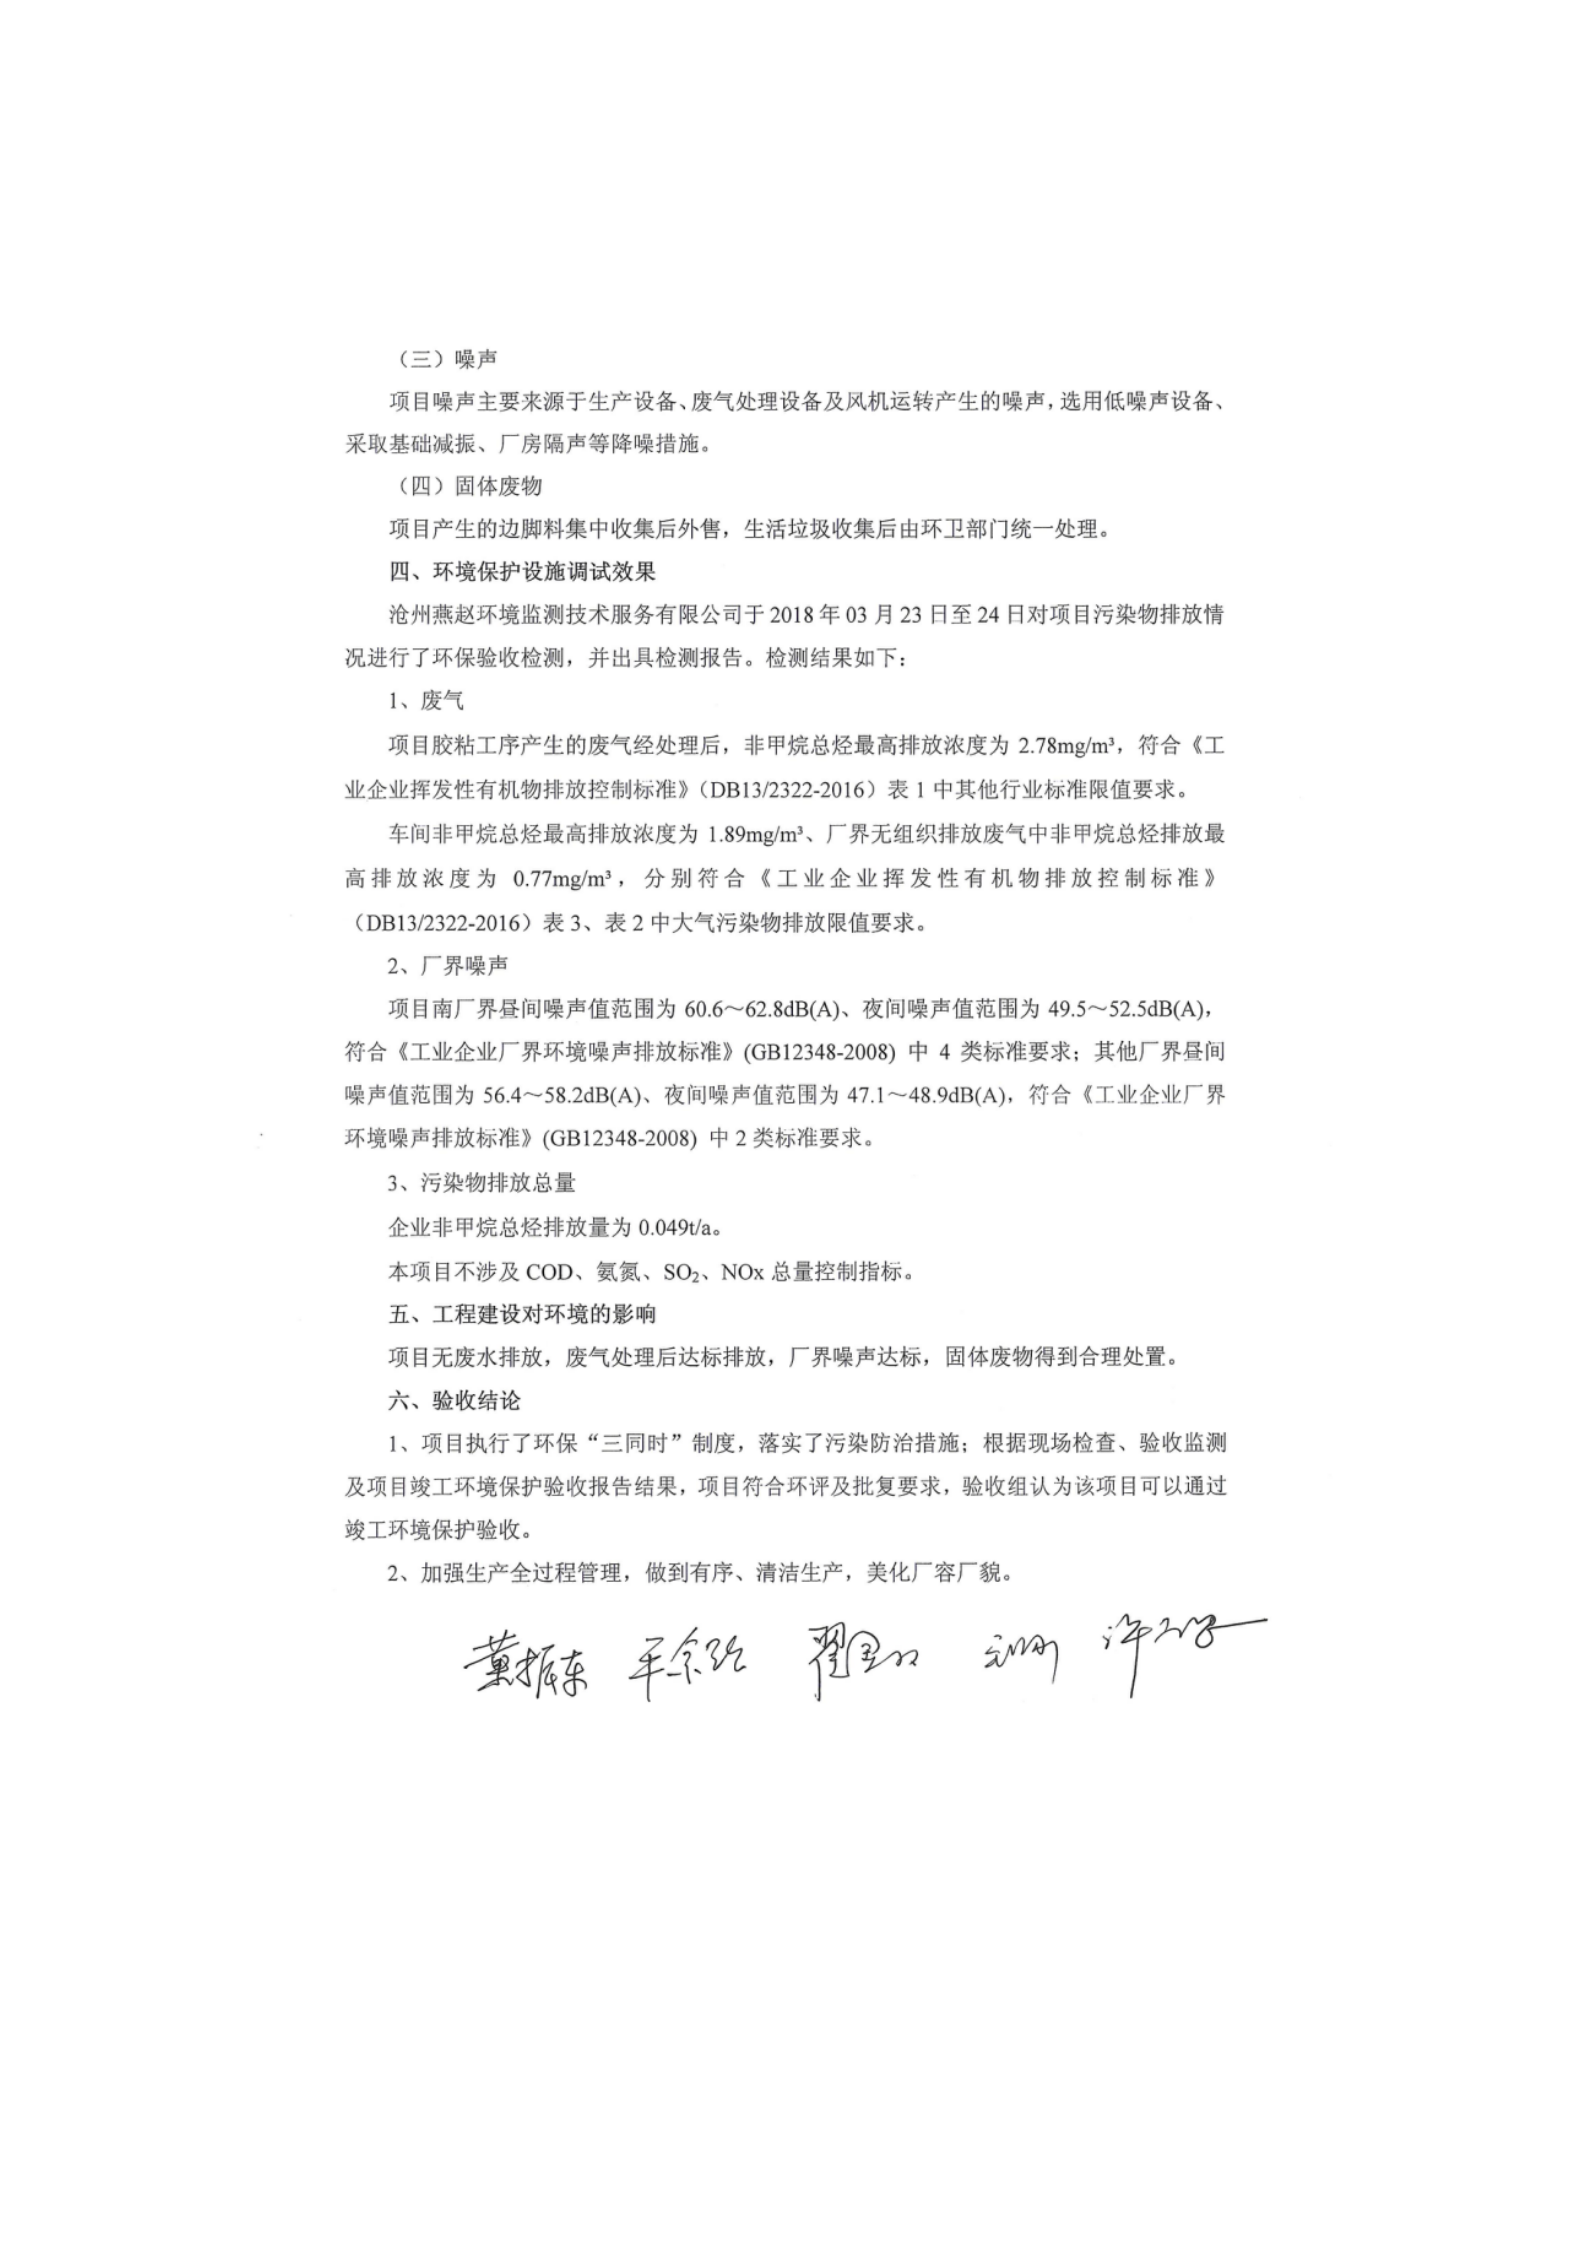 （三）噪声
项目噪声主要来源于生产设备、废气处理设备及风机运转产生的噪声，选用低噪声设备、
采取基础减振、厂房隔声等降噪措施。
（四）固体废物
项目产生的边脚料集中收集后外售，生活垃圾收集后由环卫部门统一处理。
四、环境保护设施调试效果
沧州燕赵环境监测技术服务有限公司于 2018 年 03 月 23 日至 24 日对项目污染物排放情
况进行了环保验收检测，并出具检测报告。检测结果如下：
1、废气
项目胶粘工序产生的废气经处理后，非甲烷总烃最高排放浓度为 2.78mg/m³，符合《工
业企业挥发性有机物排放控制标准》（DB13/2322-2016）表 1 中其他行业标准限值要求。
车间非甲烷总烃最高排放浓度为 1.89mg/m³、厂界无组织排放废气中非甲烷总烃排放最
高排放浓度为 0.77mg/m³，分别符合《工业企业挥发性有机物排放控制标准》
（DB13/2322-2016）表 3、表 2 中大气污染物排放限值要求。
2、厂界噪声
项目南厂界昼间噪声值范围为 60.6～62.8dB(A)、夜间噪声值范围为 49.5～52.5dB(A)，
符合《工业企业厂界环境噪声排放标准》(GB12348-2008) 中 4 类标准要求；其他厂界昼间
噪声值范围为 56.4～58.2dB(A)、夜间噪声值范围为 47.1～48.9dB(A)，符合《工业企业厂界
环境噪声排放标准》(GB12348-2008) 中 2 类标准要求。
3、污染物排放总量
企业非甲烷总烃排放量为 0.049t/a。
本项目不涉及 COD、氨氮、SO₂、NOx 总量控制指标。
五、工程建设对环境的影响
项目无废水排放，废气处理后达标排放，厂界噪声达标，固体废物得到合理处置。
六、验收结论
1、项目执行了环保“三同时”制度，落实了污染防治措施；根据现场检查、验收监测
及项目竣工环境保护验收报告结果，项目符合环评及批复要求，验收组认为该项目可以通过
竣工环境保护验收。
2、加强生产全过程管理，做到有序、清洁生产，美化厂容厂貌。
董振东